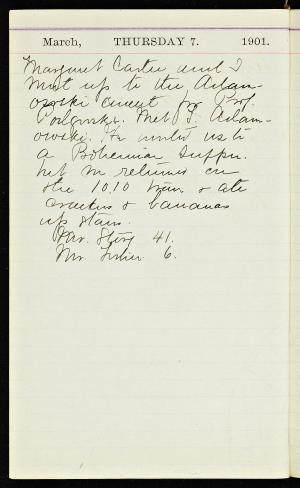 March, THURSDAY 7. 1901.
Margaret Carter and I
went up to the Adam-
owski concert for Prof
Met T. Adam-
owski. He invited us to
a Bohemian supper.
but we returned on
the 10.10 train & ate
crackers & bananas
up stairs.
41.
Mr. 6.